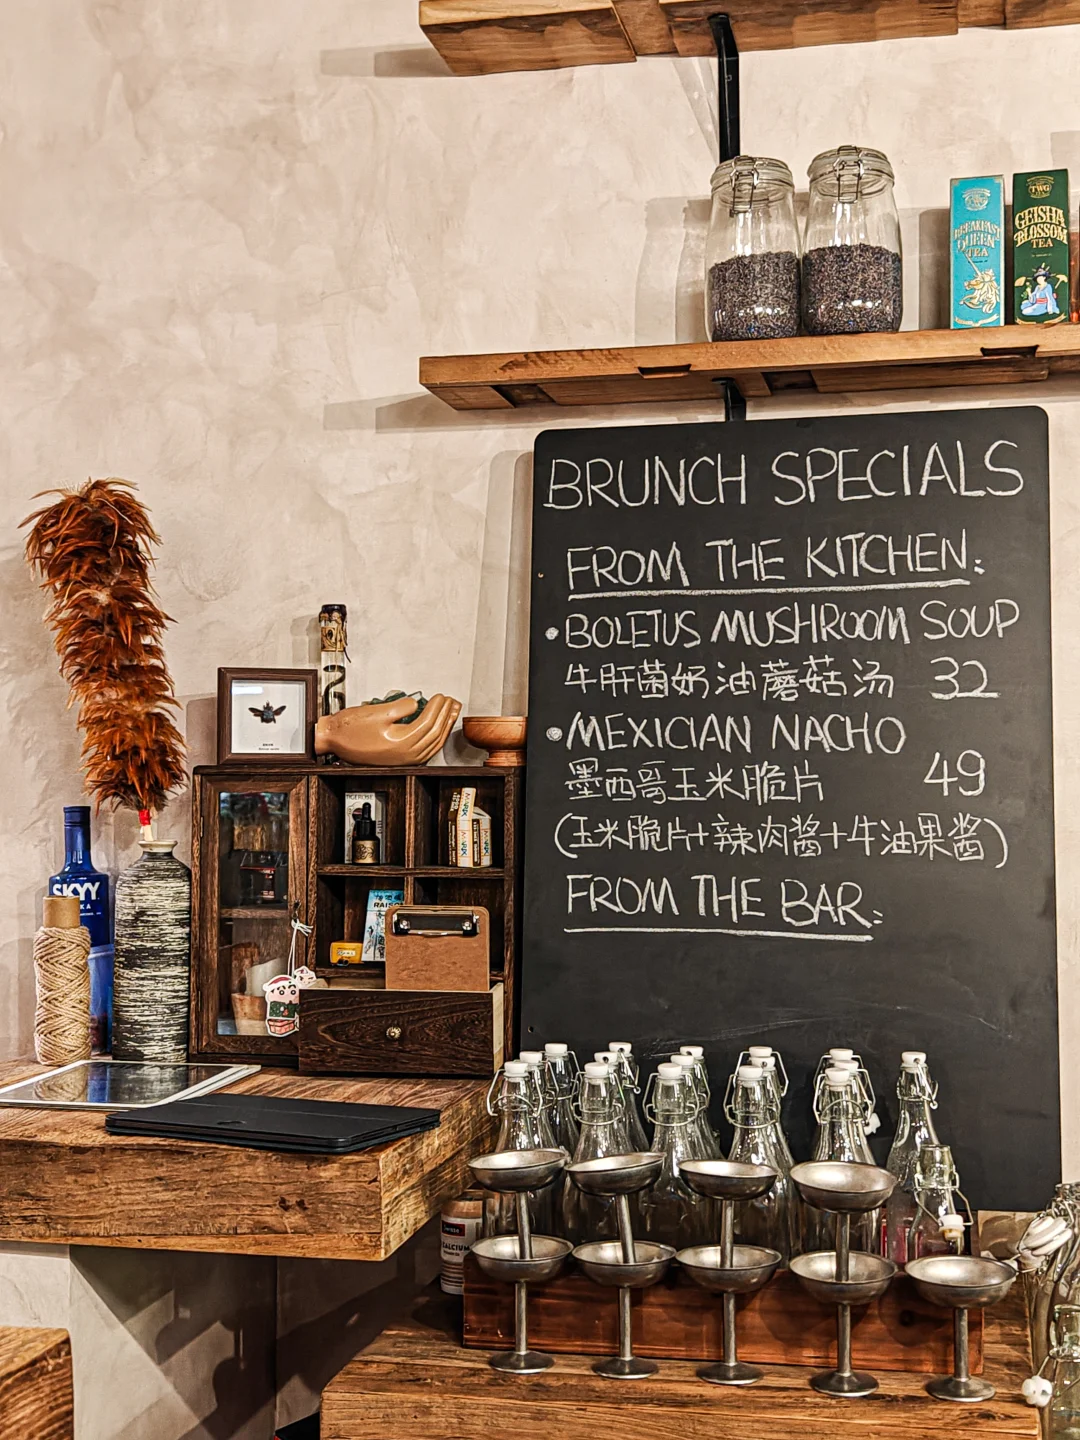 TWG
BREAKFAST
QUEEN
TEA
TWG
GEISHA
BLOSSOM
TEA
BRUNCH SPECIALS
FROM THE KITCHEN:
• BOLETUS MUSHROOM SOUP
牛肝菌奶油蘑菇汤 32
• MEXICIAN NACHO
墨西哥玉米脆片 49
(玉米脆片+辣肉酱+牛油果酱)
FROM THE BAR:
SKYY
CALCIUM